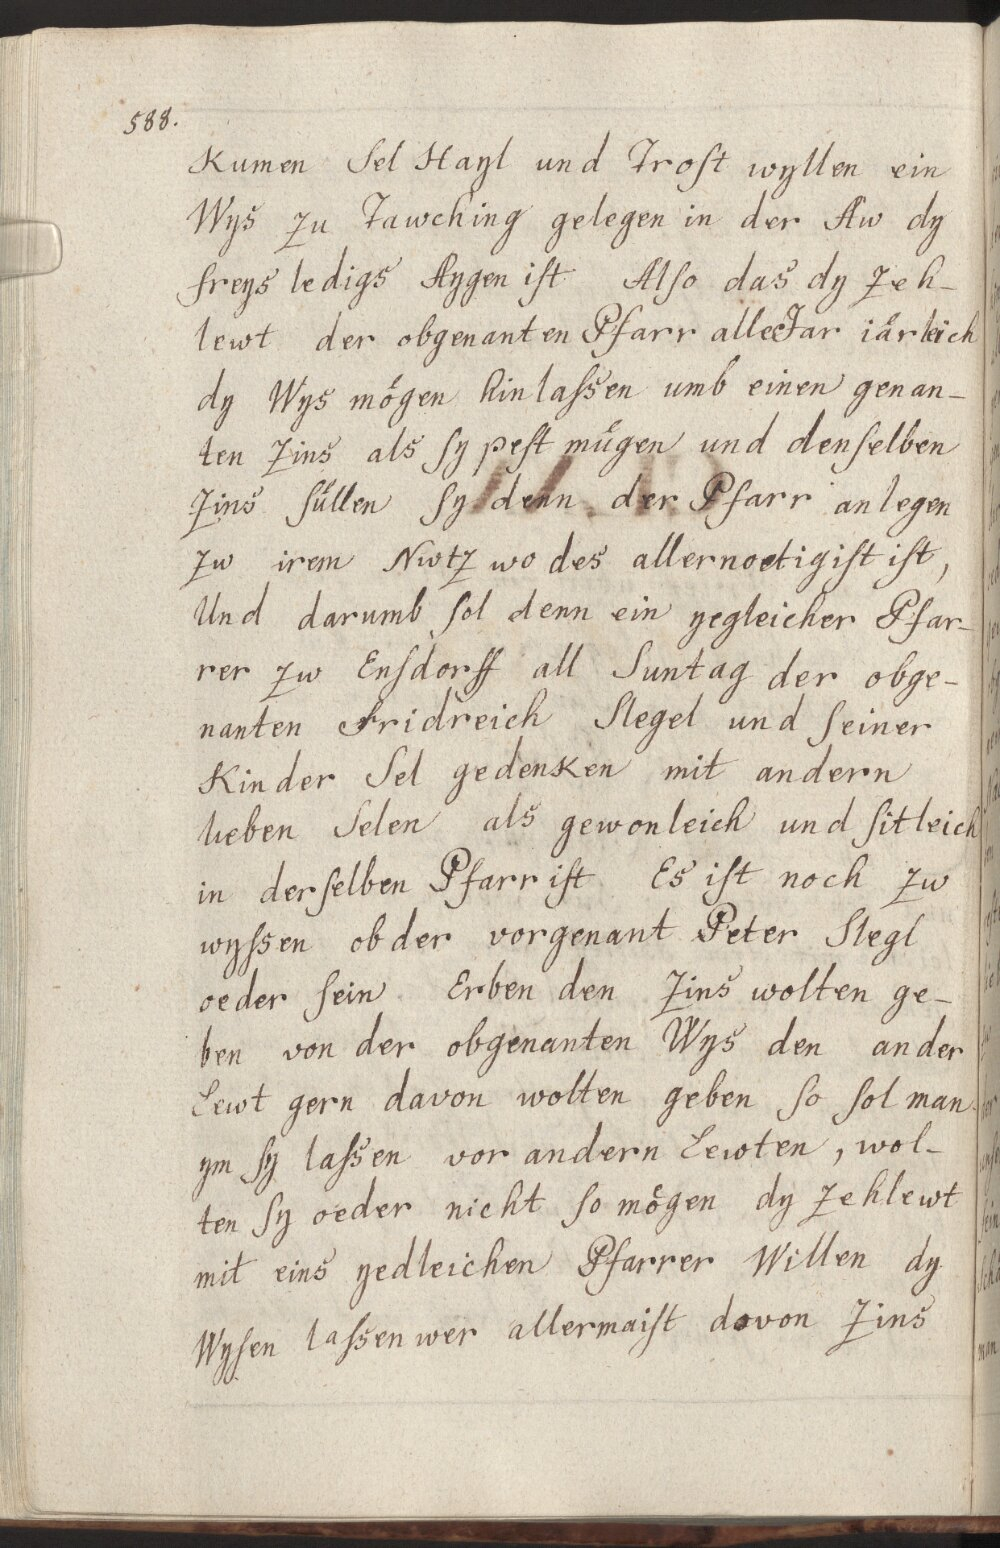 588.
Kumen Sel Hayl und Trost wyllen ein
Wys zu Tawching gelegen in der Aw dy
freys ledigs Aygen ist Also das dy zeh-
lewt der obgenanten Pfarr alle Jar iärleich
dy Wys mögen hinlassen umb einen genan-
ten Zins als sy pest mügen und denselben
Zins süllen sy denn der Pfarr anlegen
zw irem Nwtz wo des allernoetigist ist,
Und darumb sol denn ein yegleicher Pfar-
rer zw Ensdorff all Suntag der obge-
nanten Fridreich Slegel und seiner
Kinder Sel gedenken mit andern
lieben Selen als gewonleich und sitleich
in derselben Pfarr ist Es ist noch zw
wyssen ob der vorgenant Peter Slegl
oeder sein Erben den Zins wolten ge-
ben von der obgenanten Wys den ander
Lewt gern davon wolten geben so sol man
ym sy lassen vor andern Lewten, wol-
ten sy oeder nicht so mögen dy zehlewt
mit eins yedleichen Pfarrer Willen dy
Wysen lassen wer allermaist davon Zins